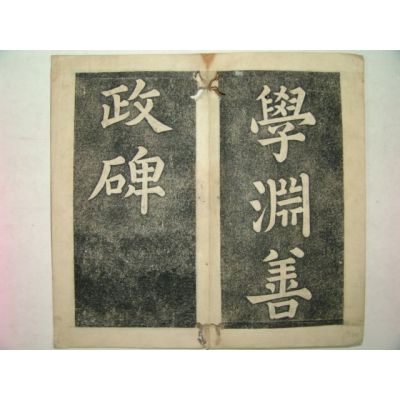 學淵善
政碑